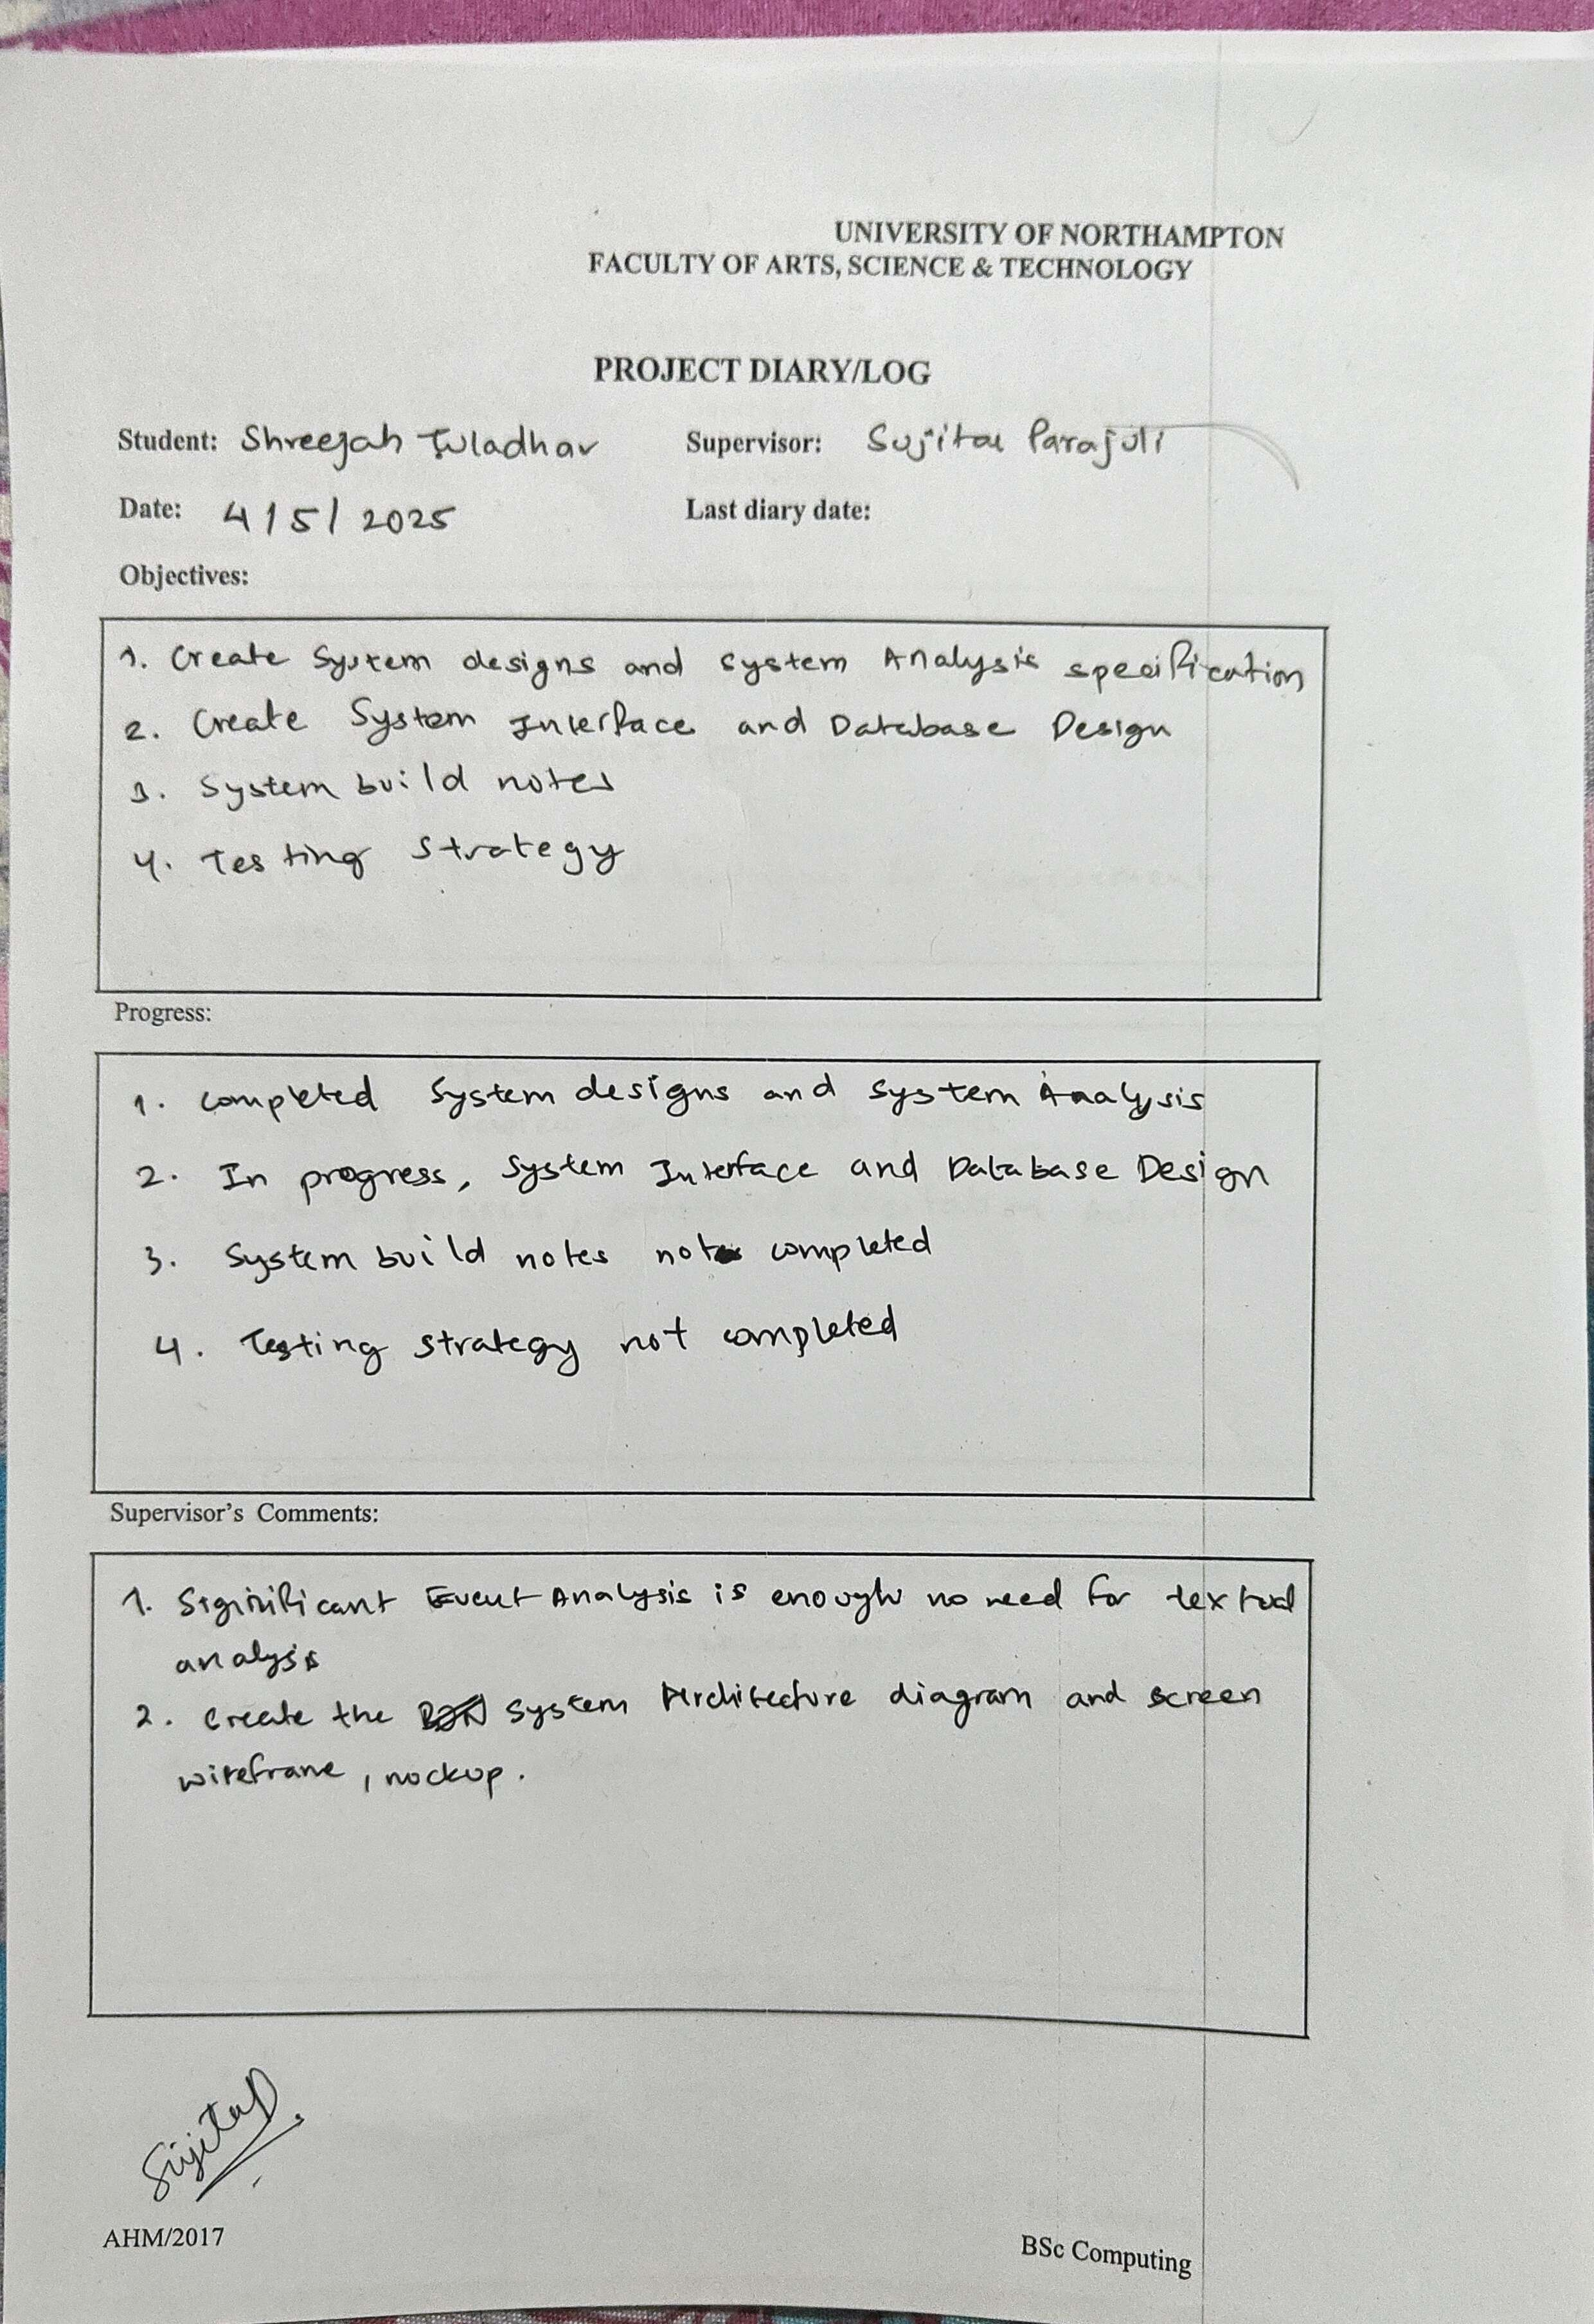 UNIVERSITY OF NORTHAMPTON
FACULTY OF ARTS, SCIENCE & TECHNOLOGY
PROJECT DIARY/LOG
Student: Shreejah Tuladhar Supervisor: Sujita Parajuli
Date: 4/5/2025 Last diary date:
Objectives:
1. Create System designs and system Analysis specification
2. Create System Interface and Database Design
3. System build notes
4. Testing Strategy
Progress:
1. Completed System designs and System Analysis
2. In progress, System Interface and Database Design
3. System build notes not completed
4. Testing strategy not completed
Supervisor's Comments:
1. Significant Event Analysis is enough no need for textual
analysis
2. Create the System Architecture diagram and screen
wireframe, mockup.
SujitaP.
AHM/2017
BSc Computing